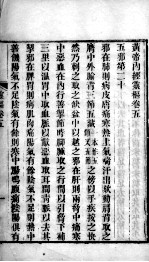 黃帝內經靈樞卷五
五邪第二十
邪在肺則病皮膚痛寒熱上氣喘汗出欬動肩背取之
膺中外腧背三節五藏之傍以手疾按之快
然乃刺之取之缺盆中以越之邪在肝則兩脅中痛寒
中惡血在內行善掣節時腳腫取之行間以引脅下補
三里以溫胃中取血脈以散惡血取耳間青脈以去其
掣邪在脾胃則病肌肉痛陽氣有餘陰氣不足則熱中
善饑陽氣不足陰氣有餘則寒中腸鳴腹痛陰陽俱有